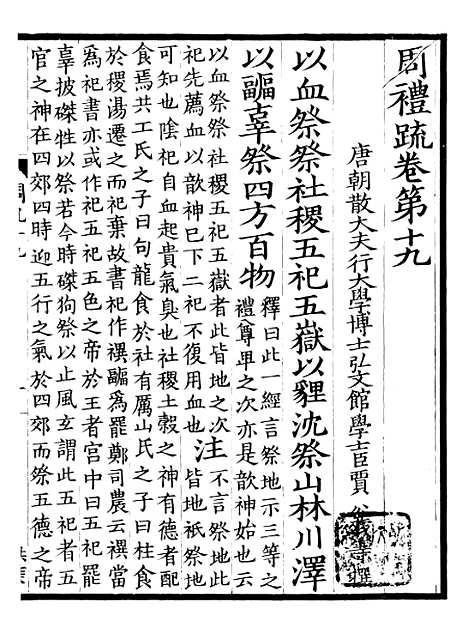 周禮疏卷第十九
唐朝散大夫行大學博士弘文館學士臣賈 等撰
以血祭祭社稷五祀五嶽以貍沈祭山林川澤
以疈辜祭四方百物
釋曰此一經言祭地示三等之
禮尊卑之次亦是歆神始也云
以血祭祭社稷五祀五嶽者此皆地之次
祀先薦血以歆神已下二祀不復用血也
注
不言祭地此
皆地祇祭地
可知也陰祀自血起貴氣臭也社稷土糓之神有德者配
食焉共工氏之子曰句龍食於社有厲山氏之子曰柱食
於稷湯遷之而祀棄故書祀作禩疈爲罷鄭司農云禩當
爲祀書亦或作祀五祀五色之帝於王者宮中曰五祀罷
辜披磔牲以祭若今時磔狗祭以止風玄謂此五祀者五
官之神在四郊四時迎五行之氣於四郊而祭五德之帝